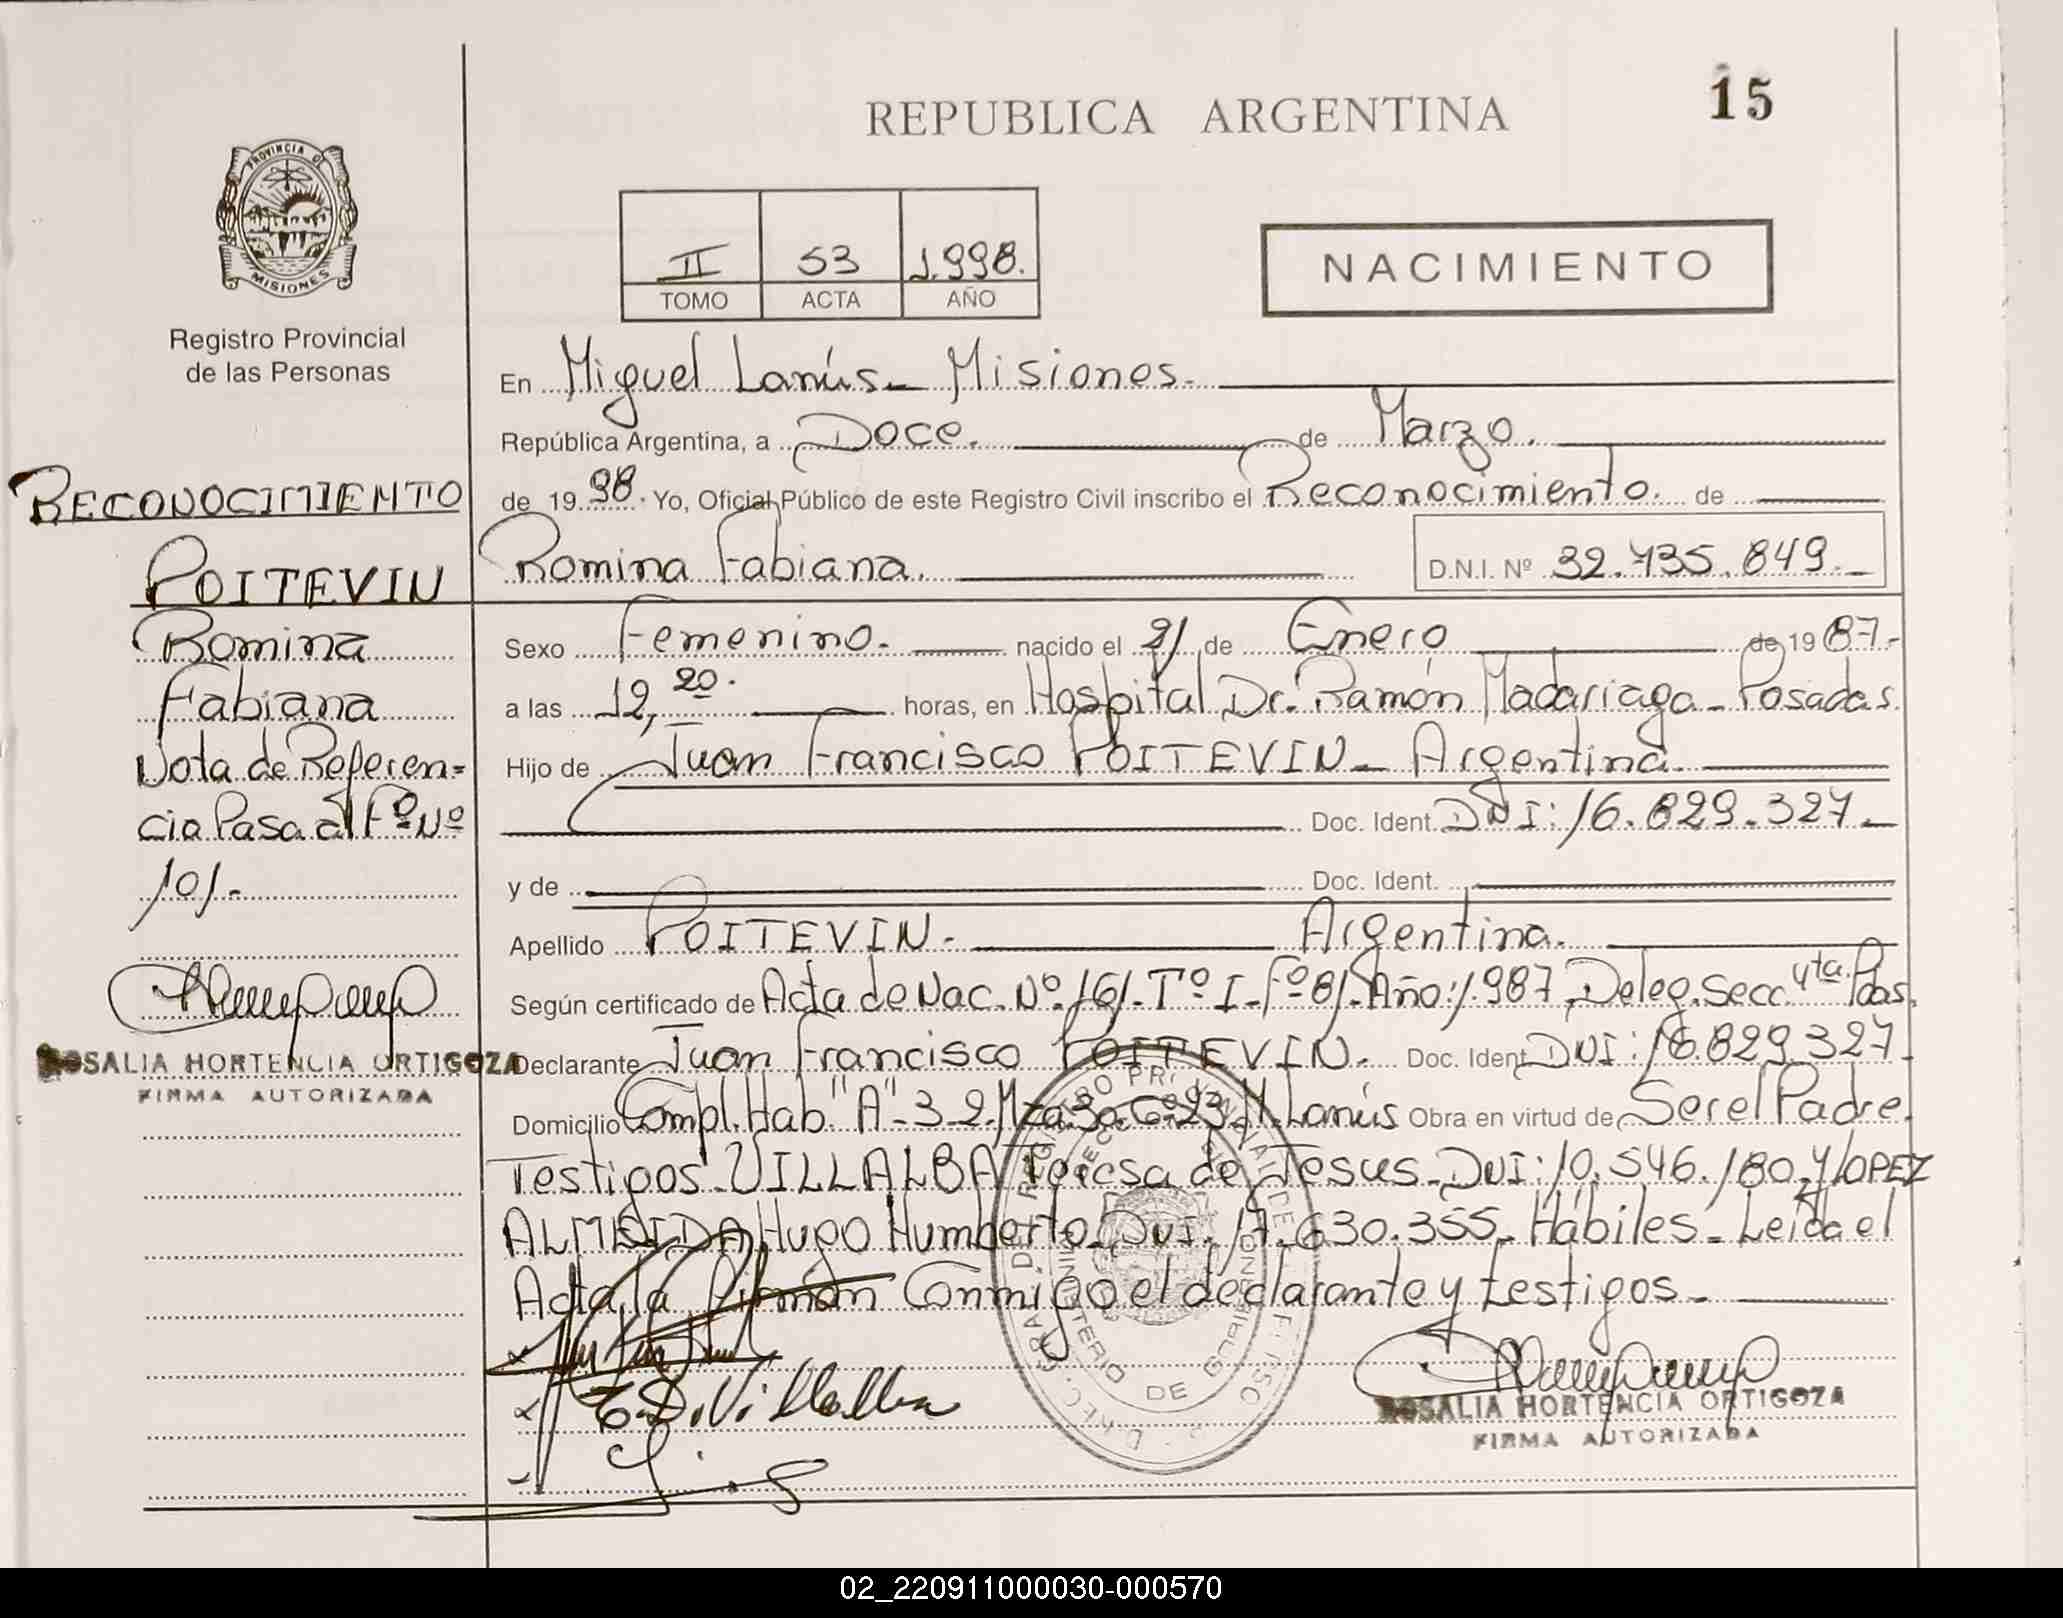 REPUBLICA ARGENTINA
15
PROVINCIA D
MISIONES
Registro Provincial
de las Personas
II 53 1.998.
TOMO ACTA AÑO
NACIMIENTO
En Miguel Lanús - Misiones.
República Argentina, a Doce. de Marzo.
de 19 98. Yo, Oficial Público de este Registro Civil inscribo el Reconocimiento. de
Romina Fabiana. D.N.I. Nº 32.735.849.
Sexo Femenino. nacido el 21 de Enero de 19 87.-
a las 12,20. horas, en Hospital Dr. Ramón Madariaga - Posadas.
Hijo de Juan Francisco POITEVIN - Argentina.
Doc. Ident. DNI: 16.829.327.-
y de Doc. Ident.
Apellido POITEVIN. Argentina.
Según certificado de Acta de Nac. Nº 161. Tº I. Fº 81. Año: 1.987, Deleg. Secc. 4ta. Pdas.
Declarante Juan Francisco POITEVIN. Doc. Ident. DNI: 16.829.327.
Domicilio Compl. Hab. "A"-32. Mza 30. Cº 23. M. Lanús Obra en virtud de Ser el Padre.
Testigos: VILLALBA Teresa de Jesus - DNI: 10.546.180. y LOPEZ
ALMEIDA Hugo Humberto. DNI. 17.630.355. Hábiles - Leida el
Acta, la firman Conmigo el declarante y testigos.
T. D. Villalba
ROSALIA HORTENCIA ORTIGOZA
FIRMA AUTORIZADA
RECONOCIMIENTO
POITEVIN
Romina
Fabiana
Nota de Referen=
cia Pasa al Fº Nº
101.-
ROSALIA HORTENCIA ORTIGOZA
FIRMA AUTORIZADA
MINISTERIO DE GOBIERNO
02_220911000030-000570